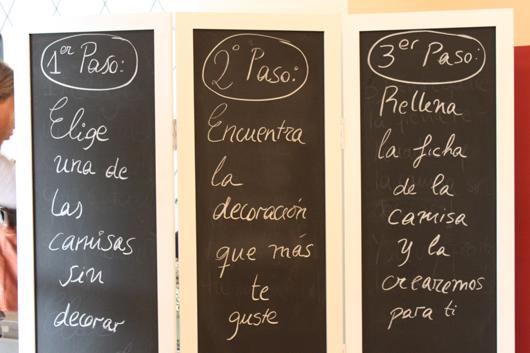 1er Paso:
Elige
una de
las
camisas
sin
decorar
2º Paso:
Encuentra
la
decoración
que más
te
guste
3er Paso:
Rellena
la ficha
de la
camisa
y la
crearemos
para ti